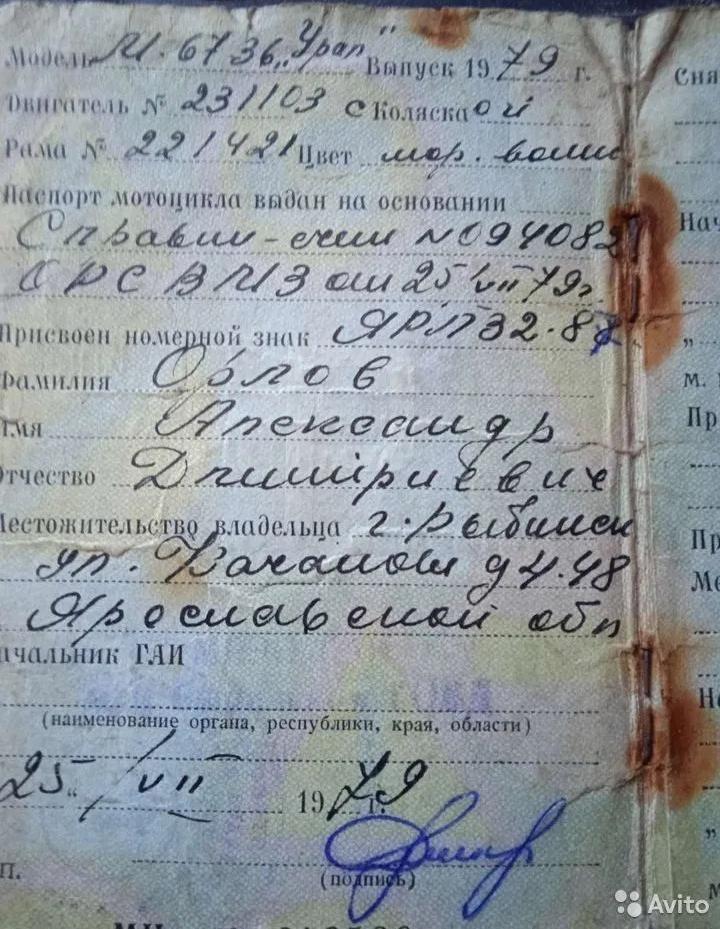 Модель М-6736 „Урал" Выпуск 1979 г.
Двигатель № 231103 с Коляской
Рама № 221421 Цвет мор. волн
Паспорт мотоцикла выдан на основании
Справки-счет №094082
ОРС ВМЗ от 25/VII 79г.
Присвоен номерной знак ЯРЛ 32-87
Фамилия Орлов
Имя Александр
Отчество Дмитриевич
Местожительство владельца г. Рыбинск
ул. д 4-48
Ярославской обл
Начальник ГАИ
(наименование органа, республики, края, области)
25" /VII 1979 г.
(подпись)
Avito